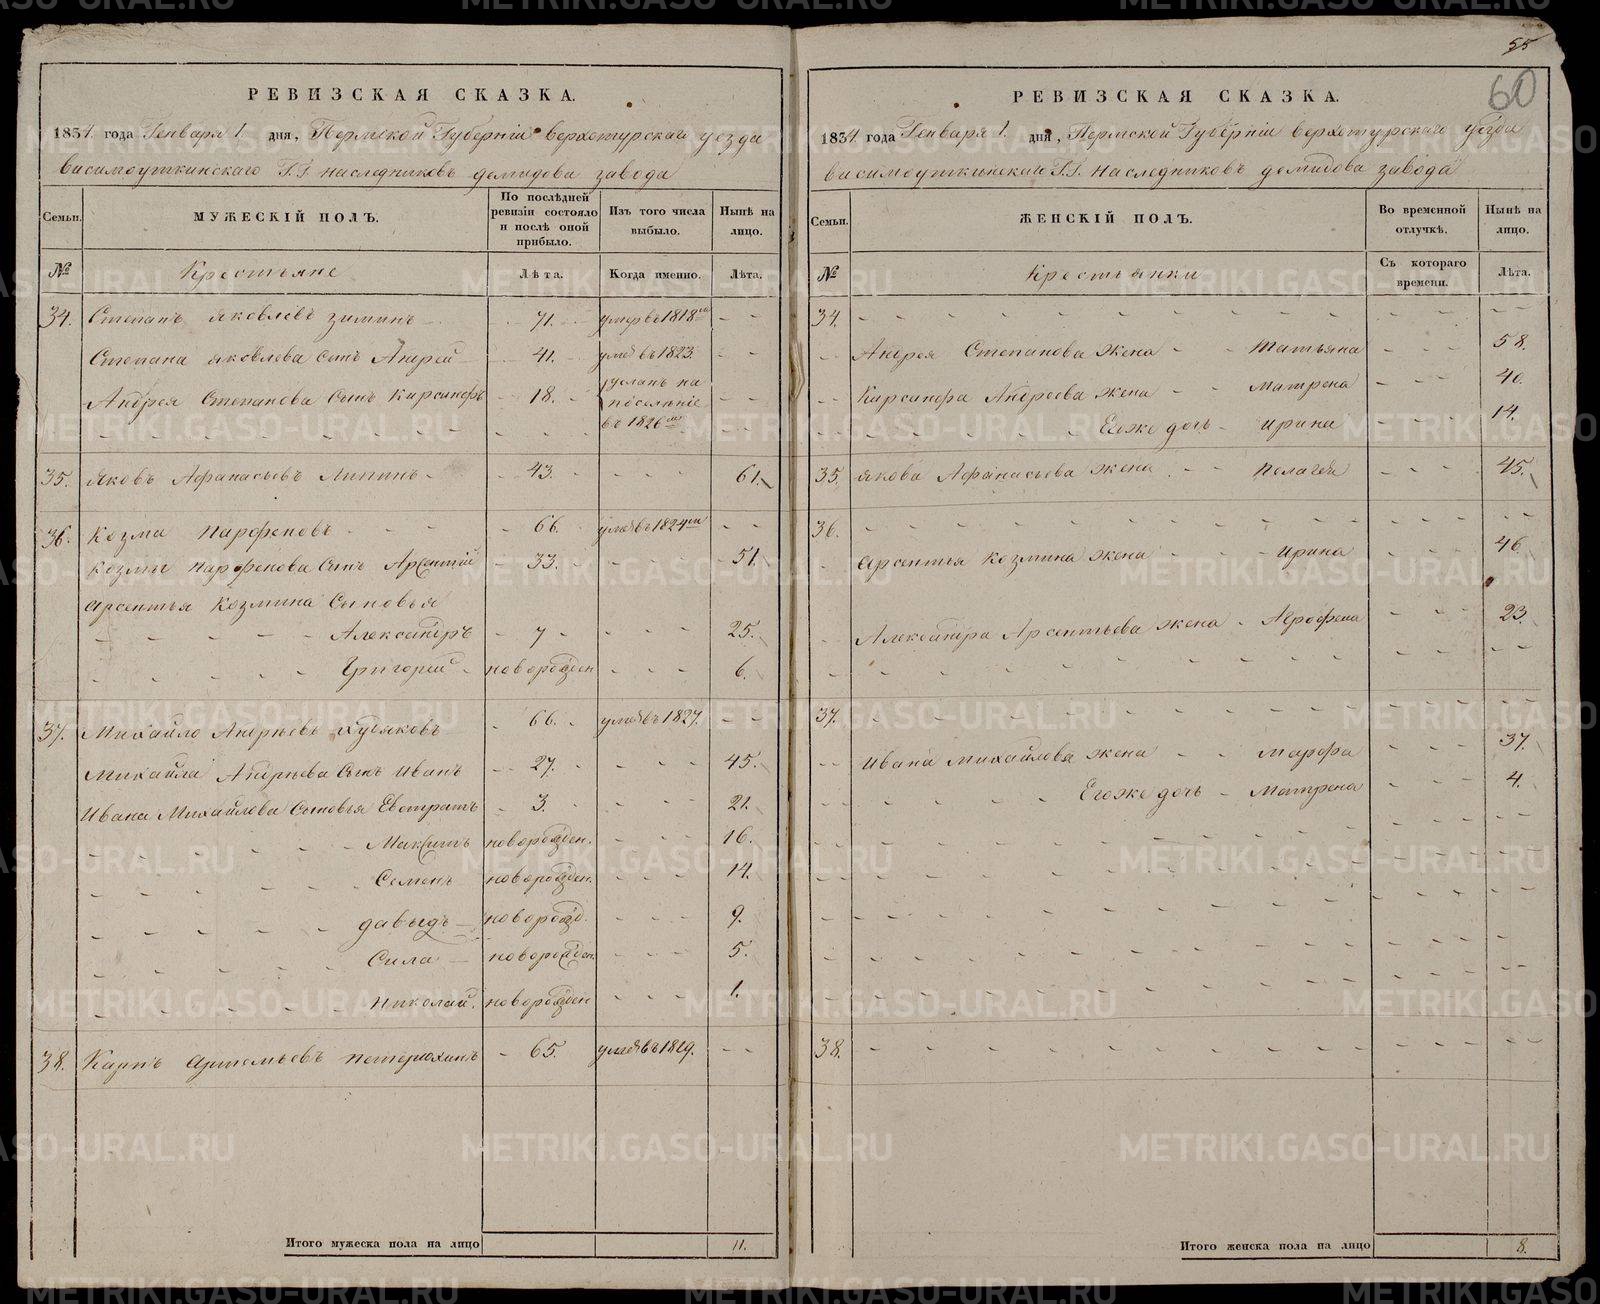 55
60
РЕВИЗСКАЯ СКАЗКА.
1834. года Генваря 1. дня, Пермской Губерніи верхотурскаго уезда
висимоуткинскаго Г.Г. наследниковъ демидова завода
Семьи. МУЖЕСКІЙ ПОЛЪ. По послѣдней ревизіи состояло и послѣ оной прибыло. Изъ того числа выбыло. Нынѣ на лицо.
№ Крестьяне Лѣта. Когда именно. Лѣта.
34. Степанъ яковлевъ зиминъ 71. умръ въ 1818м
Степана яковлева сынъ Андрей 41. умеръ въ 1823.
Андрея Степанова Сынъ Кирсанфъ 18. сосланъ на
поселеніе
въ 1826м
35. яковъ Афанасьевъ Липинъ 43. 61.
36. Козма Парфеновъ 66. умръ въ 1824м
козмы парфенова Сынъ Арсентій 33. 51.
арсентья Козмина Сыновья
Александръ 7 25.
Григорей новорожден 6.
37. Михайло Андрѣевъ худяковъ 66. умръ въ 1827.
Михайла Андрѣева Сынъ иванъ 27. 45.
Ивана Михайлова Сыновья Евстратъ 3. 21.
Максимъ новорожден. 16.
Семенъ новорожден. 14.
давыдъ новорожд. 9.
Сила новорожден. 5.
николай. новорожден 1.
38. Карпъ артемьевъ петерюхинъ 65. умръ въ 1829.
Итого мужеска пола на лицо 11.
РЕВИЗСКАЯ СКАЗКА.
1834. года Генваря 1. дня, Пермской Губерніи верхотурскаго уезда
висимоуткинскаго Г.Г. наследниковъ демидова завода
Семьи. ЖЕНСКІЙ ПОЛЪ. Во временной отлучкѣ. Нынѣ на лицо.
№ Крестьянки Съ котораго времени. Лѣта.
34.
Андрея Степанова жена Татьяна 58.
Кирсанфа Андреева жена матрена 40.
Егоже дочь ирина 14.
35. якова Афанасьева жена пелагея 45.
36.
арсентья козмина жена ирина 46.
Александра Арсентьева жена Агрофена 23.
37.
ивана михайлова жена марфа 37.
Егоже дочь матрена 4.
38.
Итого женска пола на лицо 8.